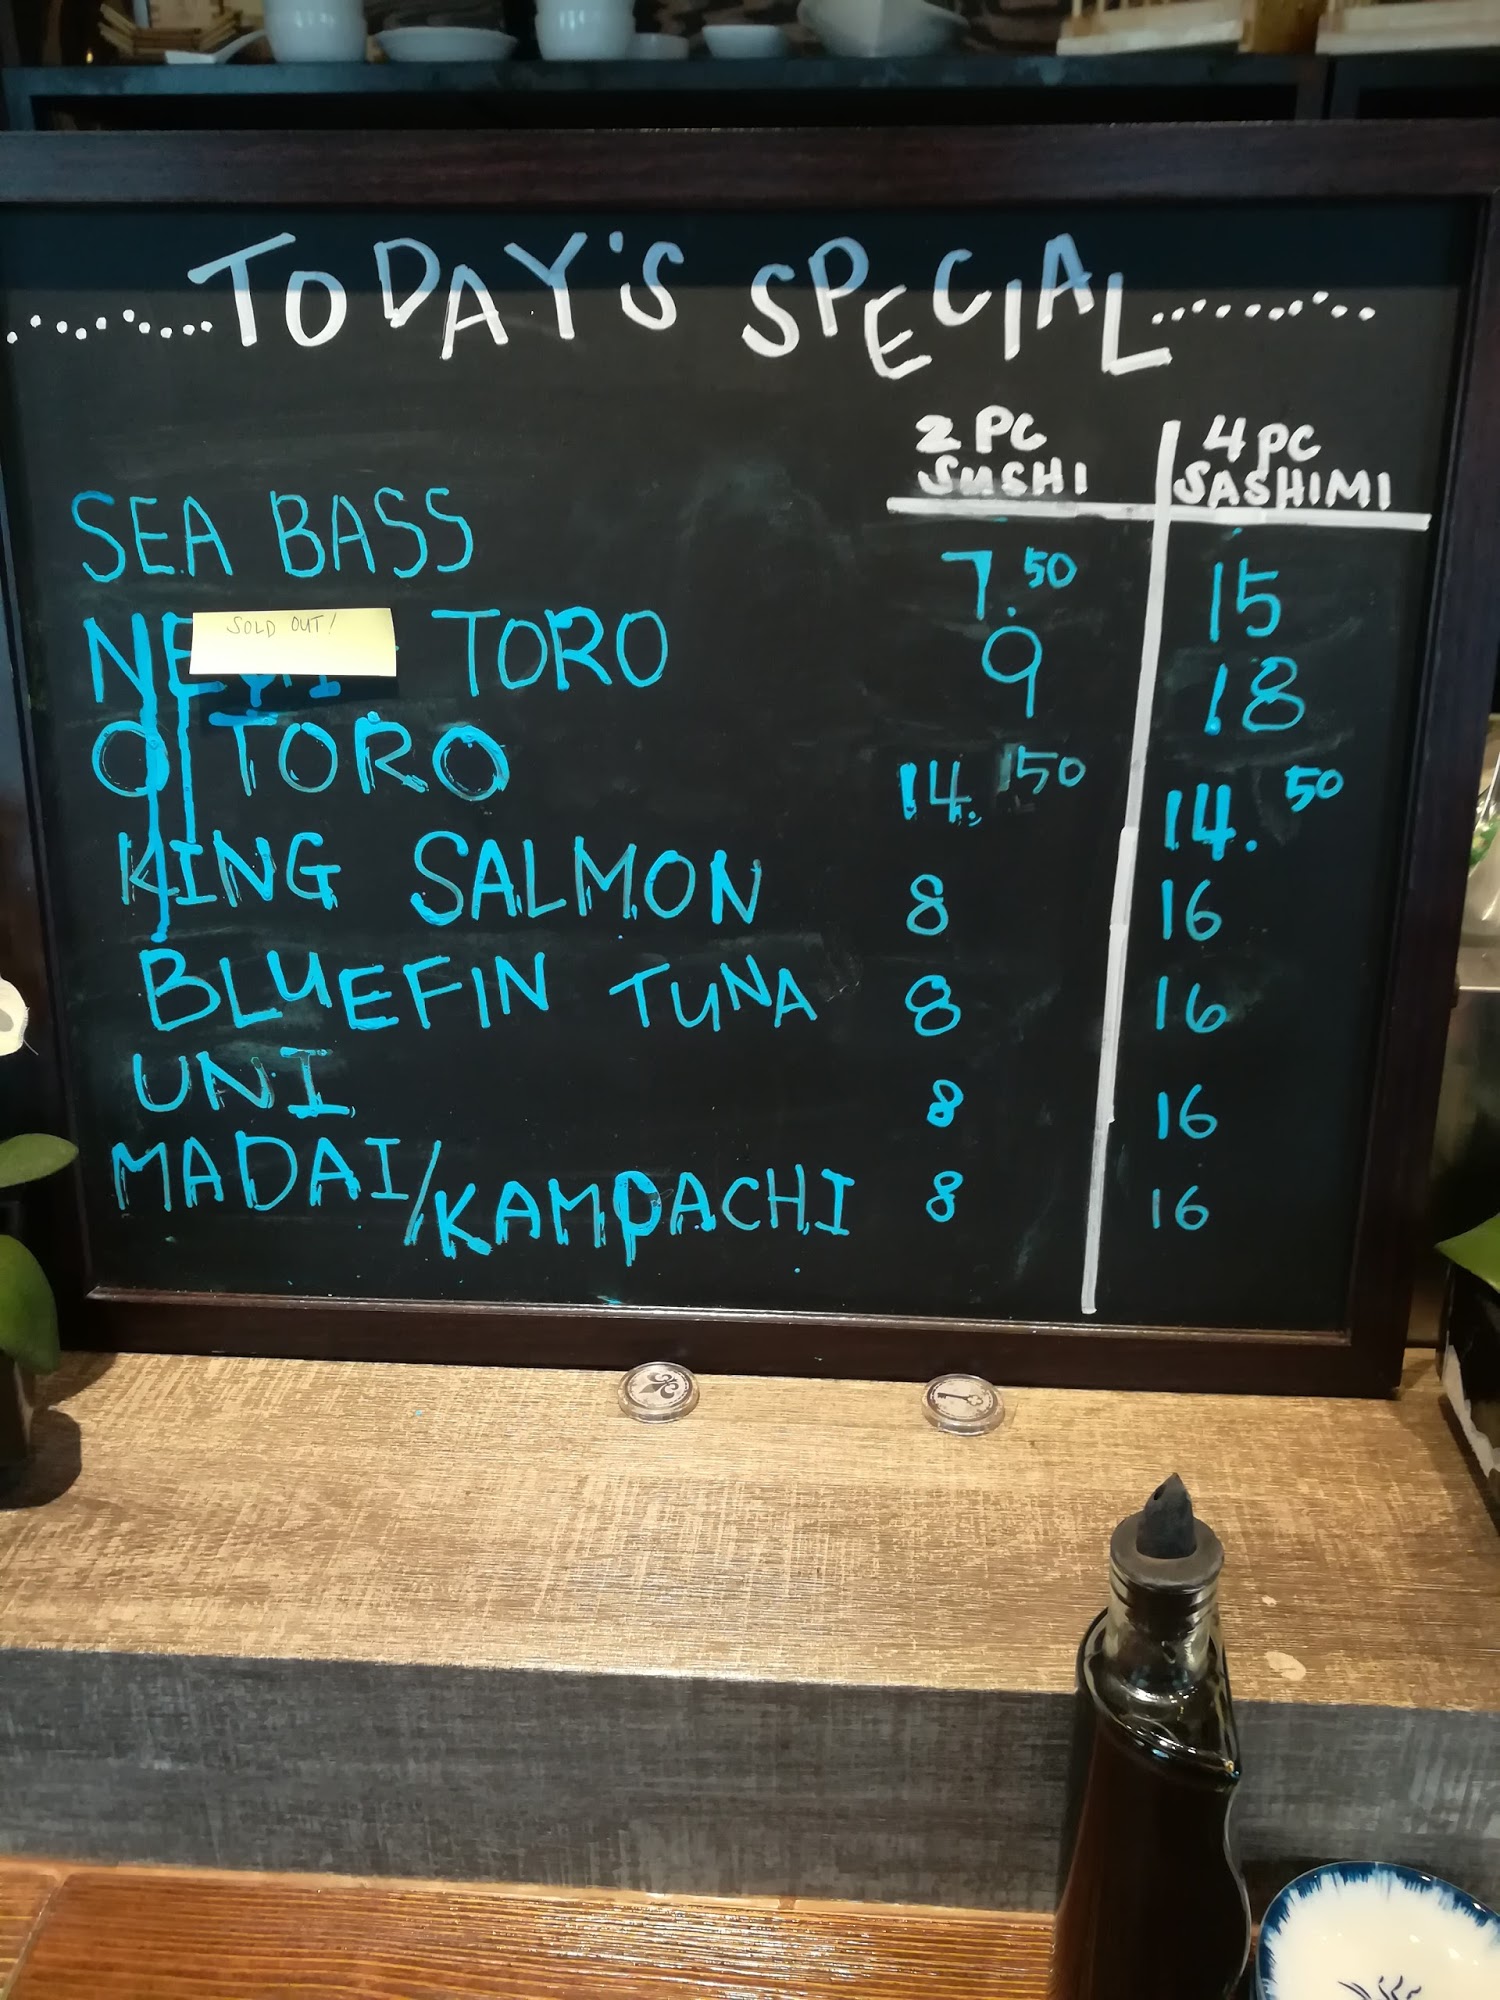 TODAY'S SPECIAL
2 PC SUSHI 4 PC SASHIMI
SEA BASS 7.50 15
SOLD OUT!
TORO 9 18
O TORO 14.50 14.50
KING SALMON 8 16
BLUEFIN TUNA 8 16
UNI 8 16
MADAI/KAMPACHI 8 16